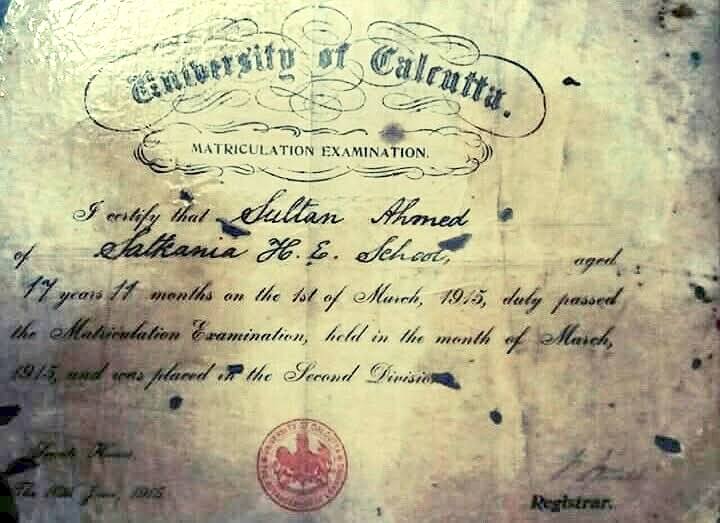 University of Calcutta.
MATRICULATION EXAMINATION.
I certify that Sultan Ahmed
of Satkania H. E. School, aged
17 years 11 months on the 1st of March, 1915, duly passed
the Matriculation Examination, held in the month of March,
1915, and was placed in the Second Division
Senate House,
The June, 1915.
UNIVERSITY OF CALCUTTA
Registrar.